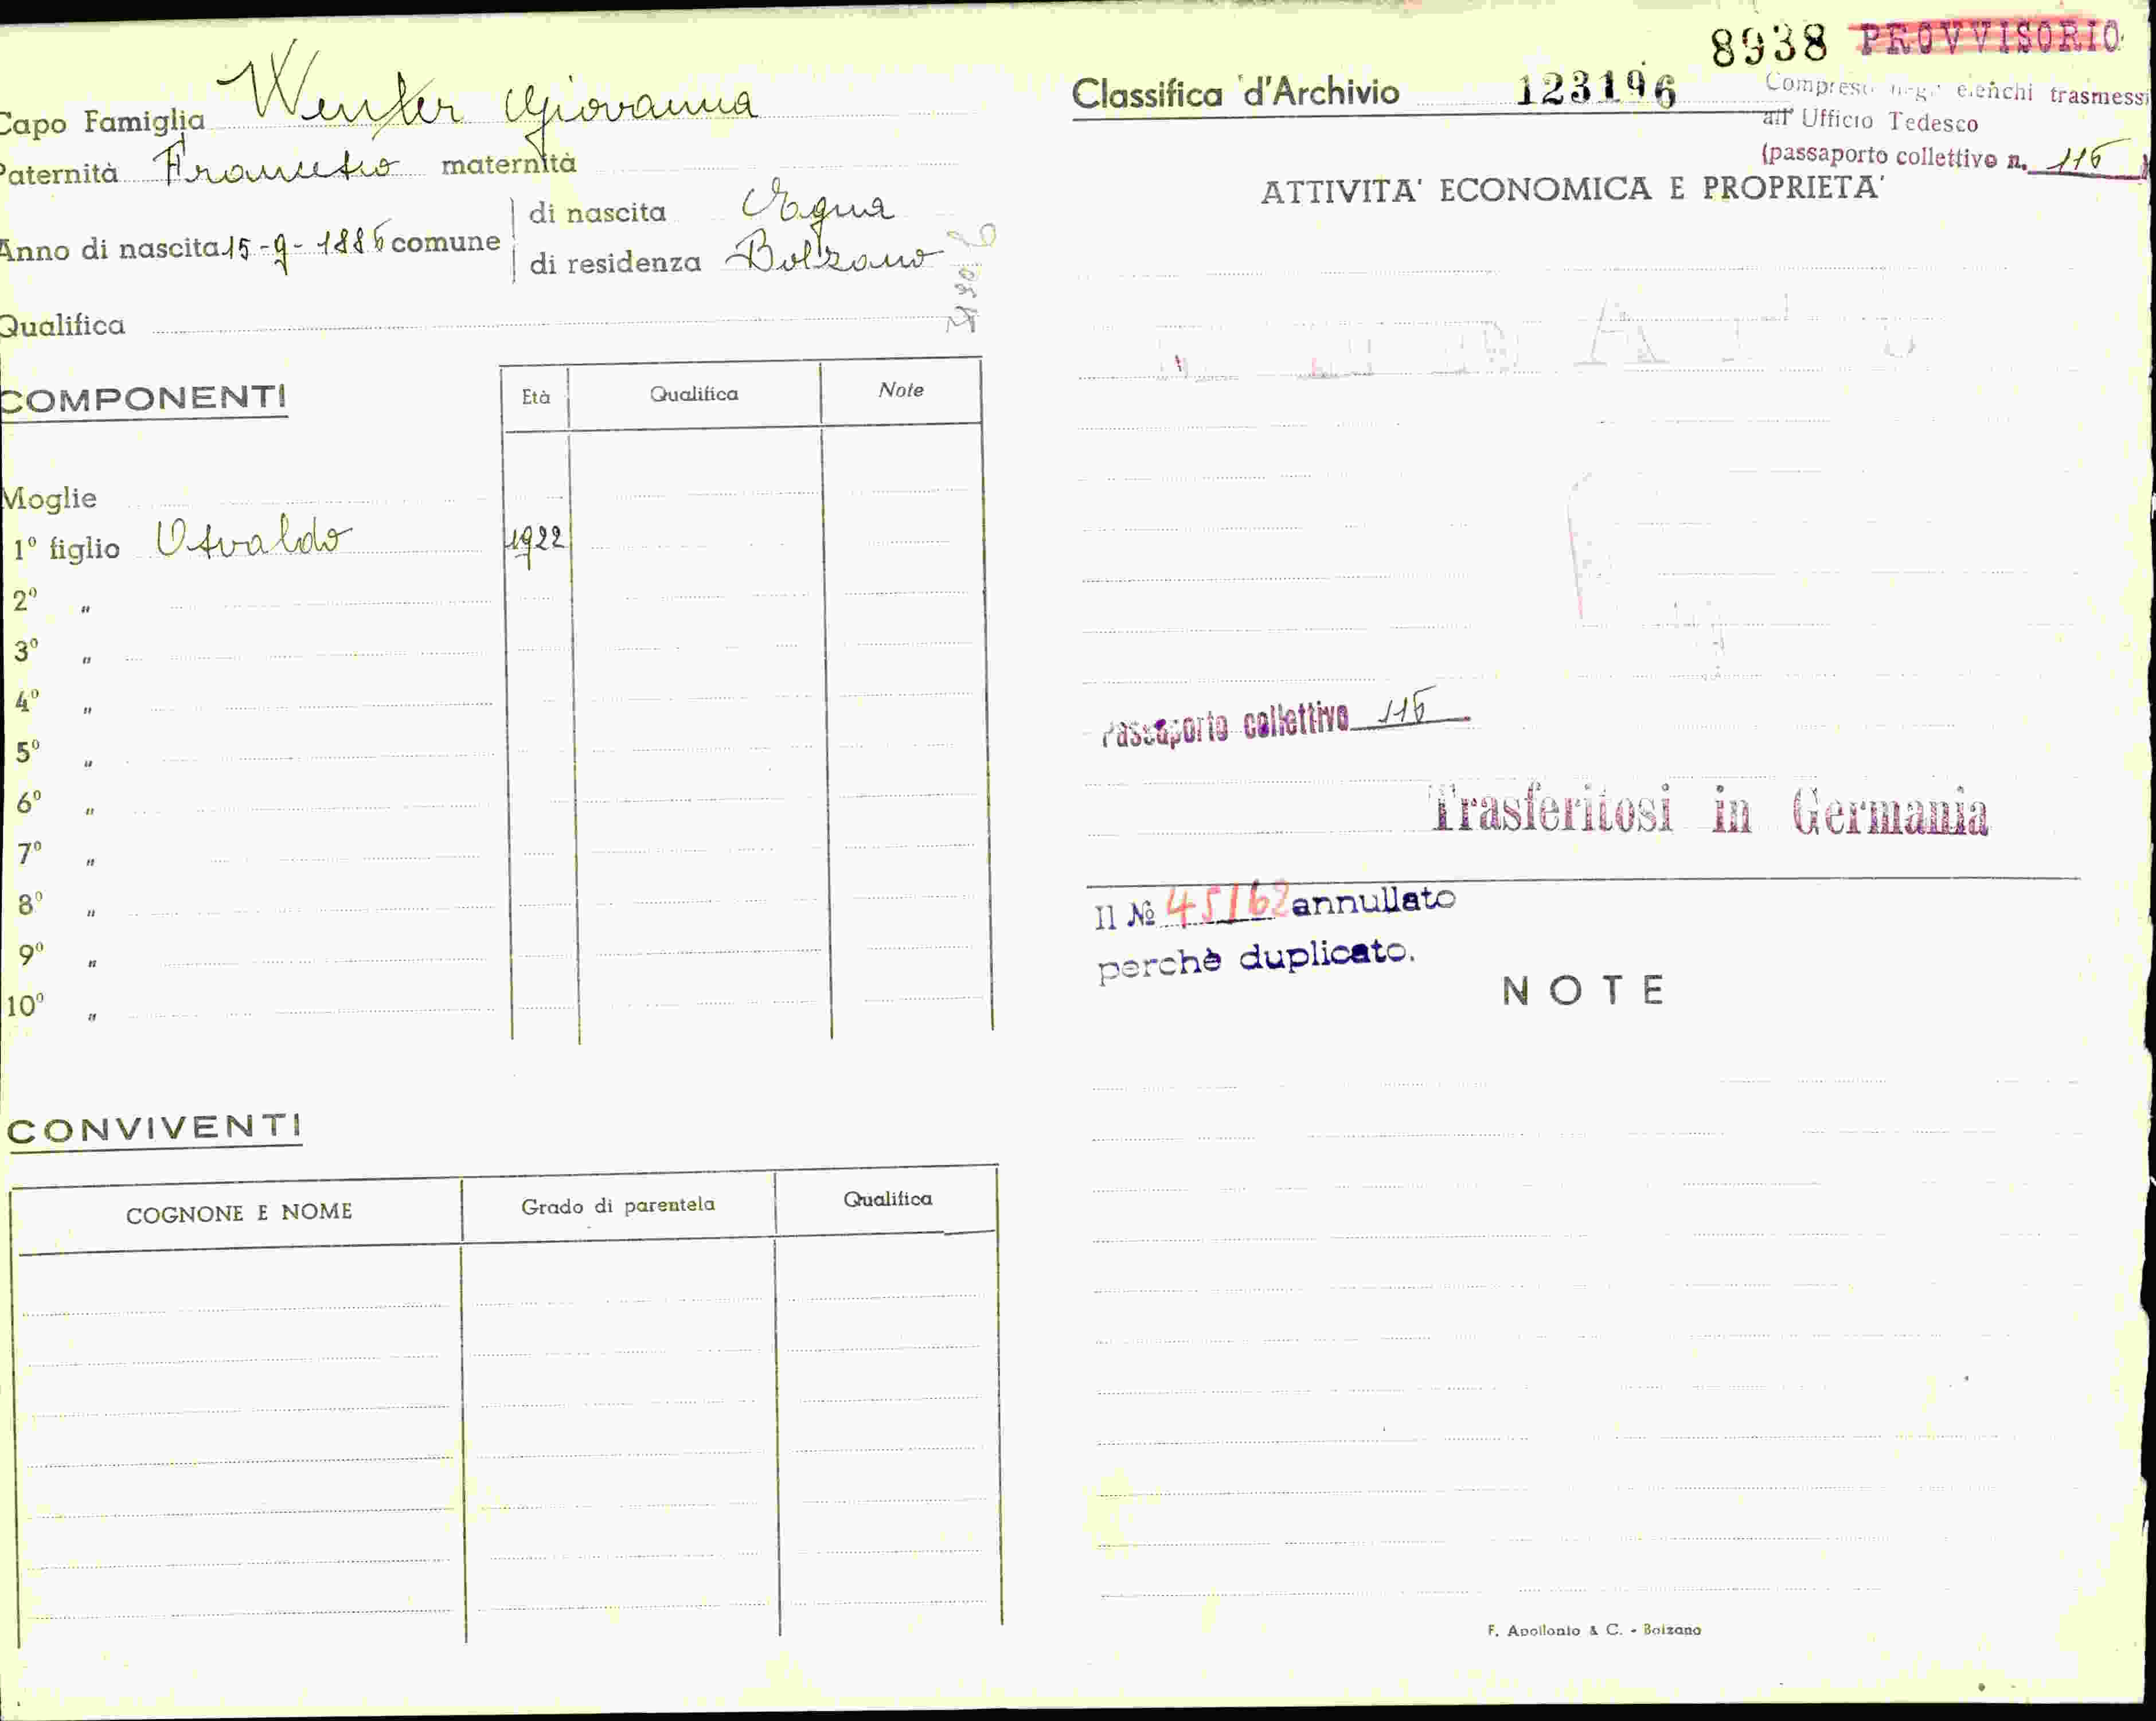 8938 PROVVISORIO
Capo Famiglia Wenter Giovanna
Paternità Francesco maternità
Anno di nascita 15-9-1886 comune
di nascita Egna
di residenza Bolzano
Qualifica
COMPONENTI
Età Qualifica Note
Moglie
1º figlio Osvaldo 1922
2º "
3º "
4º "
5º "
6º "
7º "
8º "
9º "
10º "
CONVIVENTI
COGNONE E NOME Grado di parentela Qualifica
Classifica d'Archivio 123196
elenchi trasmessi
all' Ufficio Tedesco
(passaporto collettivo n. 116)
ATTIVITA' ECONOMICA E PROPRIETA'
Passaporto collettivo 116
Trasferitosi in Germania
Il № 45162 annullato
perchè duplicato.
NOTE
F. Apollonio & C. - Bolzano